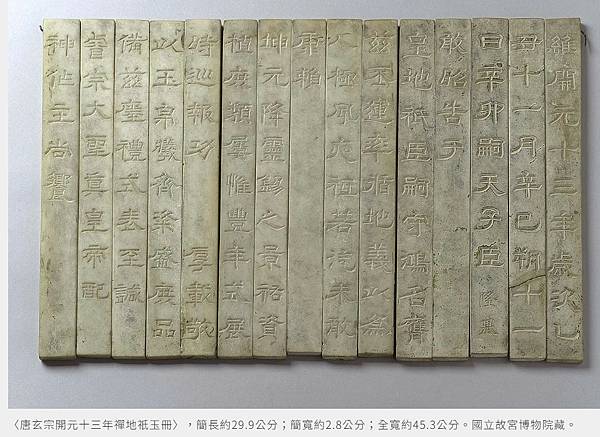 維開元十三年歲次乙
丑十一月辛巳朔十一
日辛卯嗣天子臣隆基
敢昭告于
皇地祇臣嗣守鴻名膺
茲丕運率循地義以為
人極夙夜祗若汔未敢
康賴
坤元降靈錫之景祐資
植庶類屢惟豐年式展
時巡報功 厚載敬
以玉帛犧齊粢盛庶品
備茲瘞禮式表至誠
睿宗大聖真皇帝配
神作主尚饗
〈唐玄宗開元十三年禪地祇玉冊〉，簡長約29.9公分；簡寬約2.8公分；全寬約45.3公分。國立故宮博物院藏。